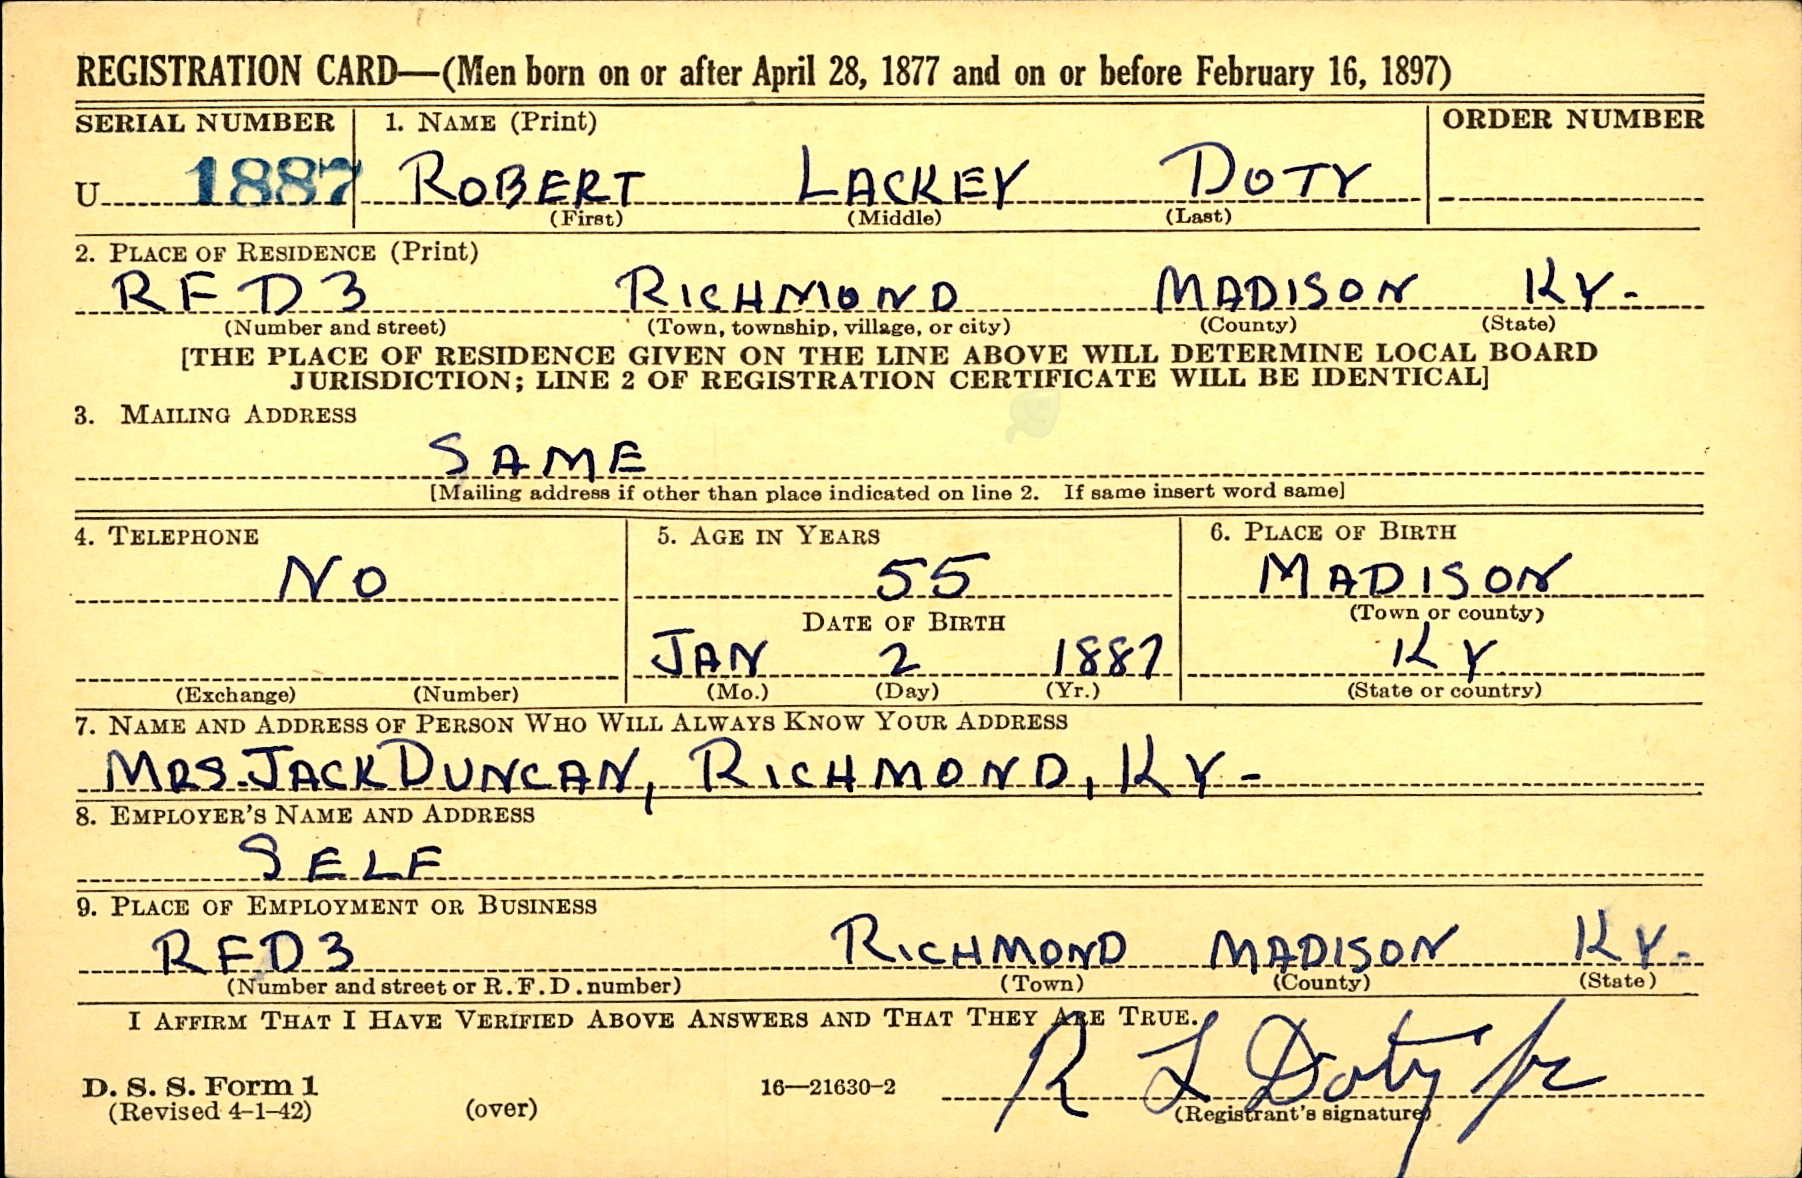 REGISTRATION CARD—(Men born on or after April 28, 1877 and on or before February 16, 1897)
SERIAL NUMBER 1. NAME (Print) ORDER NUMBER
U 1887 ROBERT LACKEY DOTY
(First) (Middle) (Last)
2. PLACE OF RESIDENCE (Print)
RFD3 RICHMOND MADISON KY.
(Number and street) (Town, township, village, or city) (County) (State)
[THE PLACE OF RESIDENCE GIVEN ON THE LINE ABOVE WILL DETERMINE LOCAL BOARD
JURISDICTION; LINE 2 OF REGISTRATION CERTIFICATE WILL BE IDENTICAL]
3. MAILING ADDRESS
SAME
[Mailing address if other than place indicated on line 2. If same insert word same]
4. TELEPHONE 5. AGE IN YEARS 6. PLACE OF BIRTH
NO 55 MADISON
DATE OF BIRTH (Town or county)
JAN 2 1887 KY
(Exchange) (Number) (Mo.) (Day) (Yr.) (State or country)
7. NAME AND ADDRESS OF PERSON WHO WILL ALWAYS KNOW YOUR ADDRESS
MRS. JACK DUNCAN, RICHMOND, KY-
8. EMPLOYER'S NAME AND ADDRESS
SELF
9. PLACE OF EMPLOYMENT OR BUSINESS
RFD3 RICHMOND MADISON KY.
(Number and street or R. F. D. number) (Town) (County) (State)
I AFFIRM THAT I HAVE VERIFIED ABOVE ANSWERS AND THAT THEY ARE TRUE.
R L Doty Jr
D. S. S. Form 1 16—21630-2
(Revised 4-1-42) (over) (Registrant's signature)